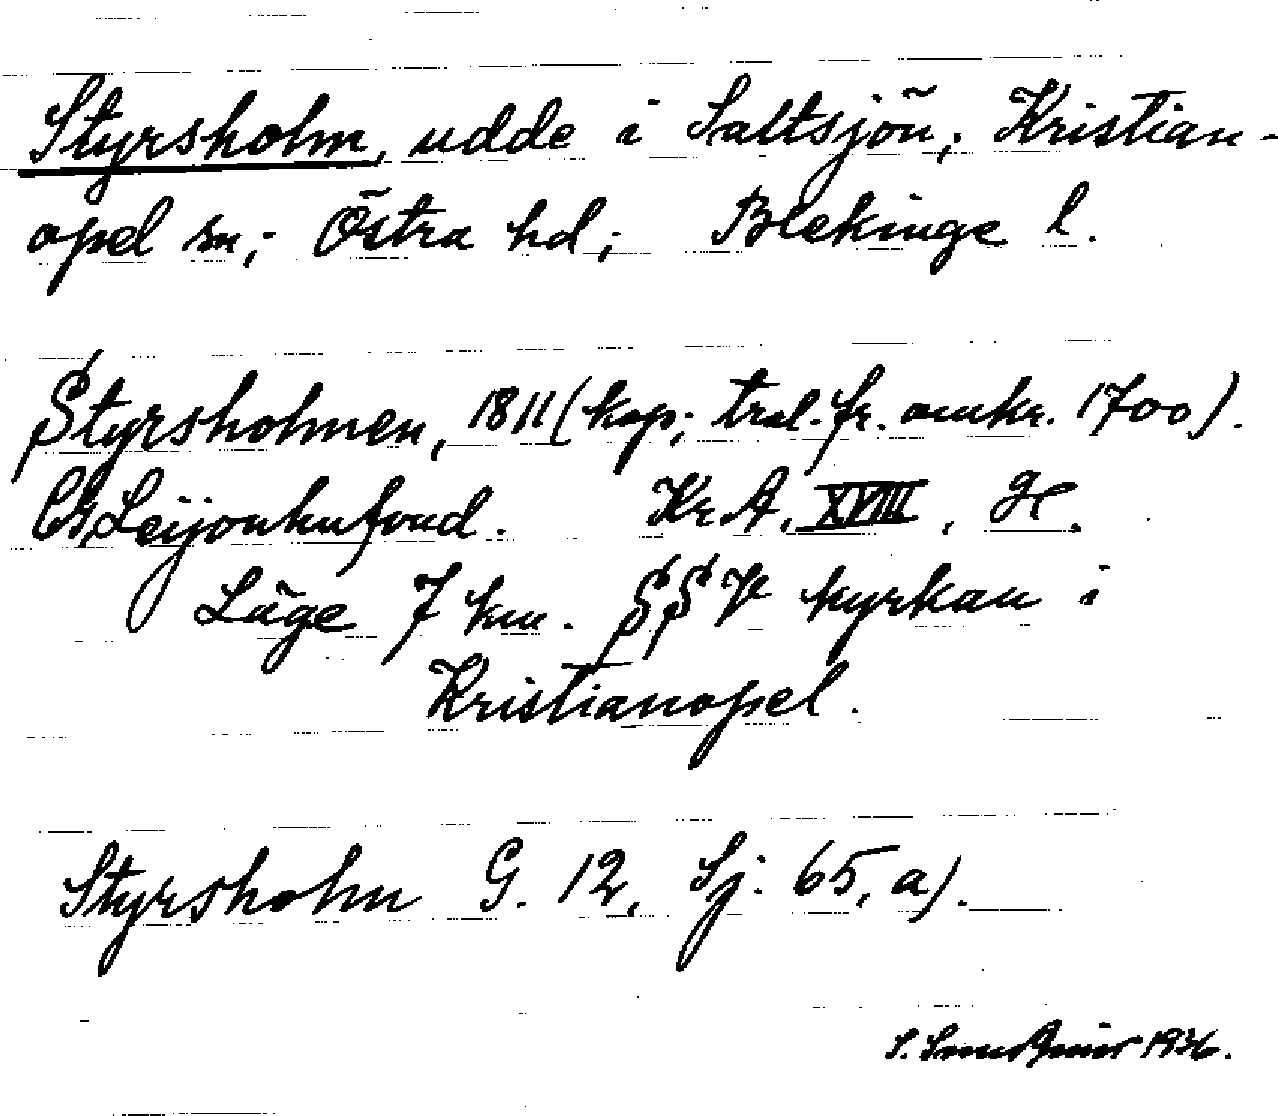 Styrsholm, udde i Saltsjön; Kristian-
opel sn; Östra hd; Blekinge l.
Styrsholmen, 1811 (kop; tral. fr. omkr. 1700).
Leijonhufvud. Kr A. XVIII, H.
Läge 7 km. SSV kyrkan i
Kristianopel.
Styrsholm G. 12, Sj. 65, a).
S. 1936.